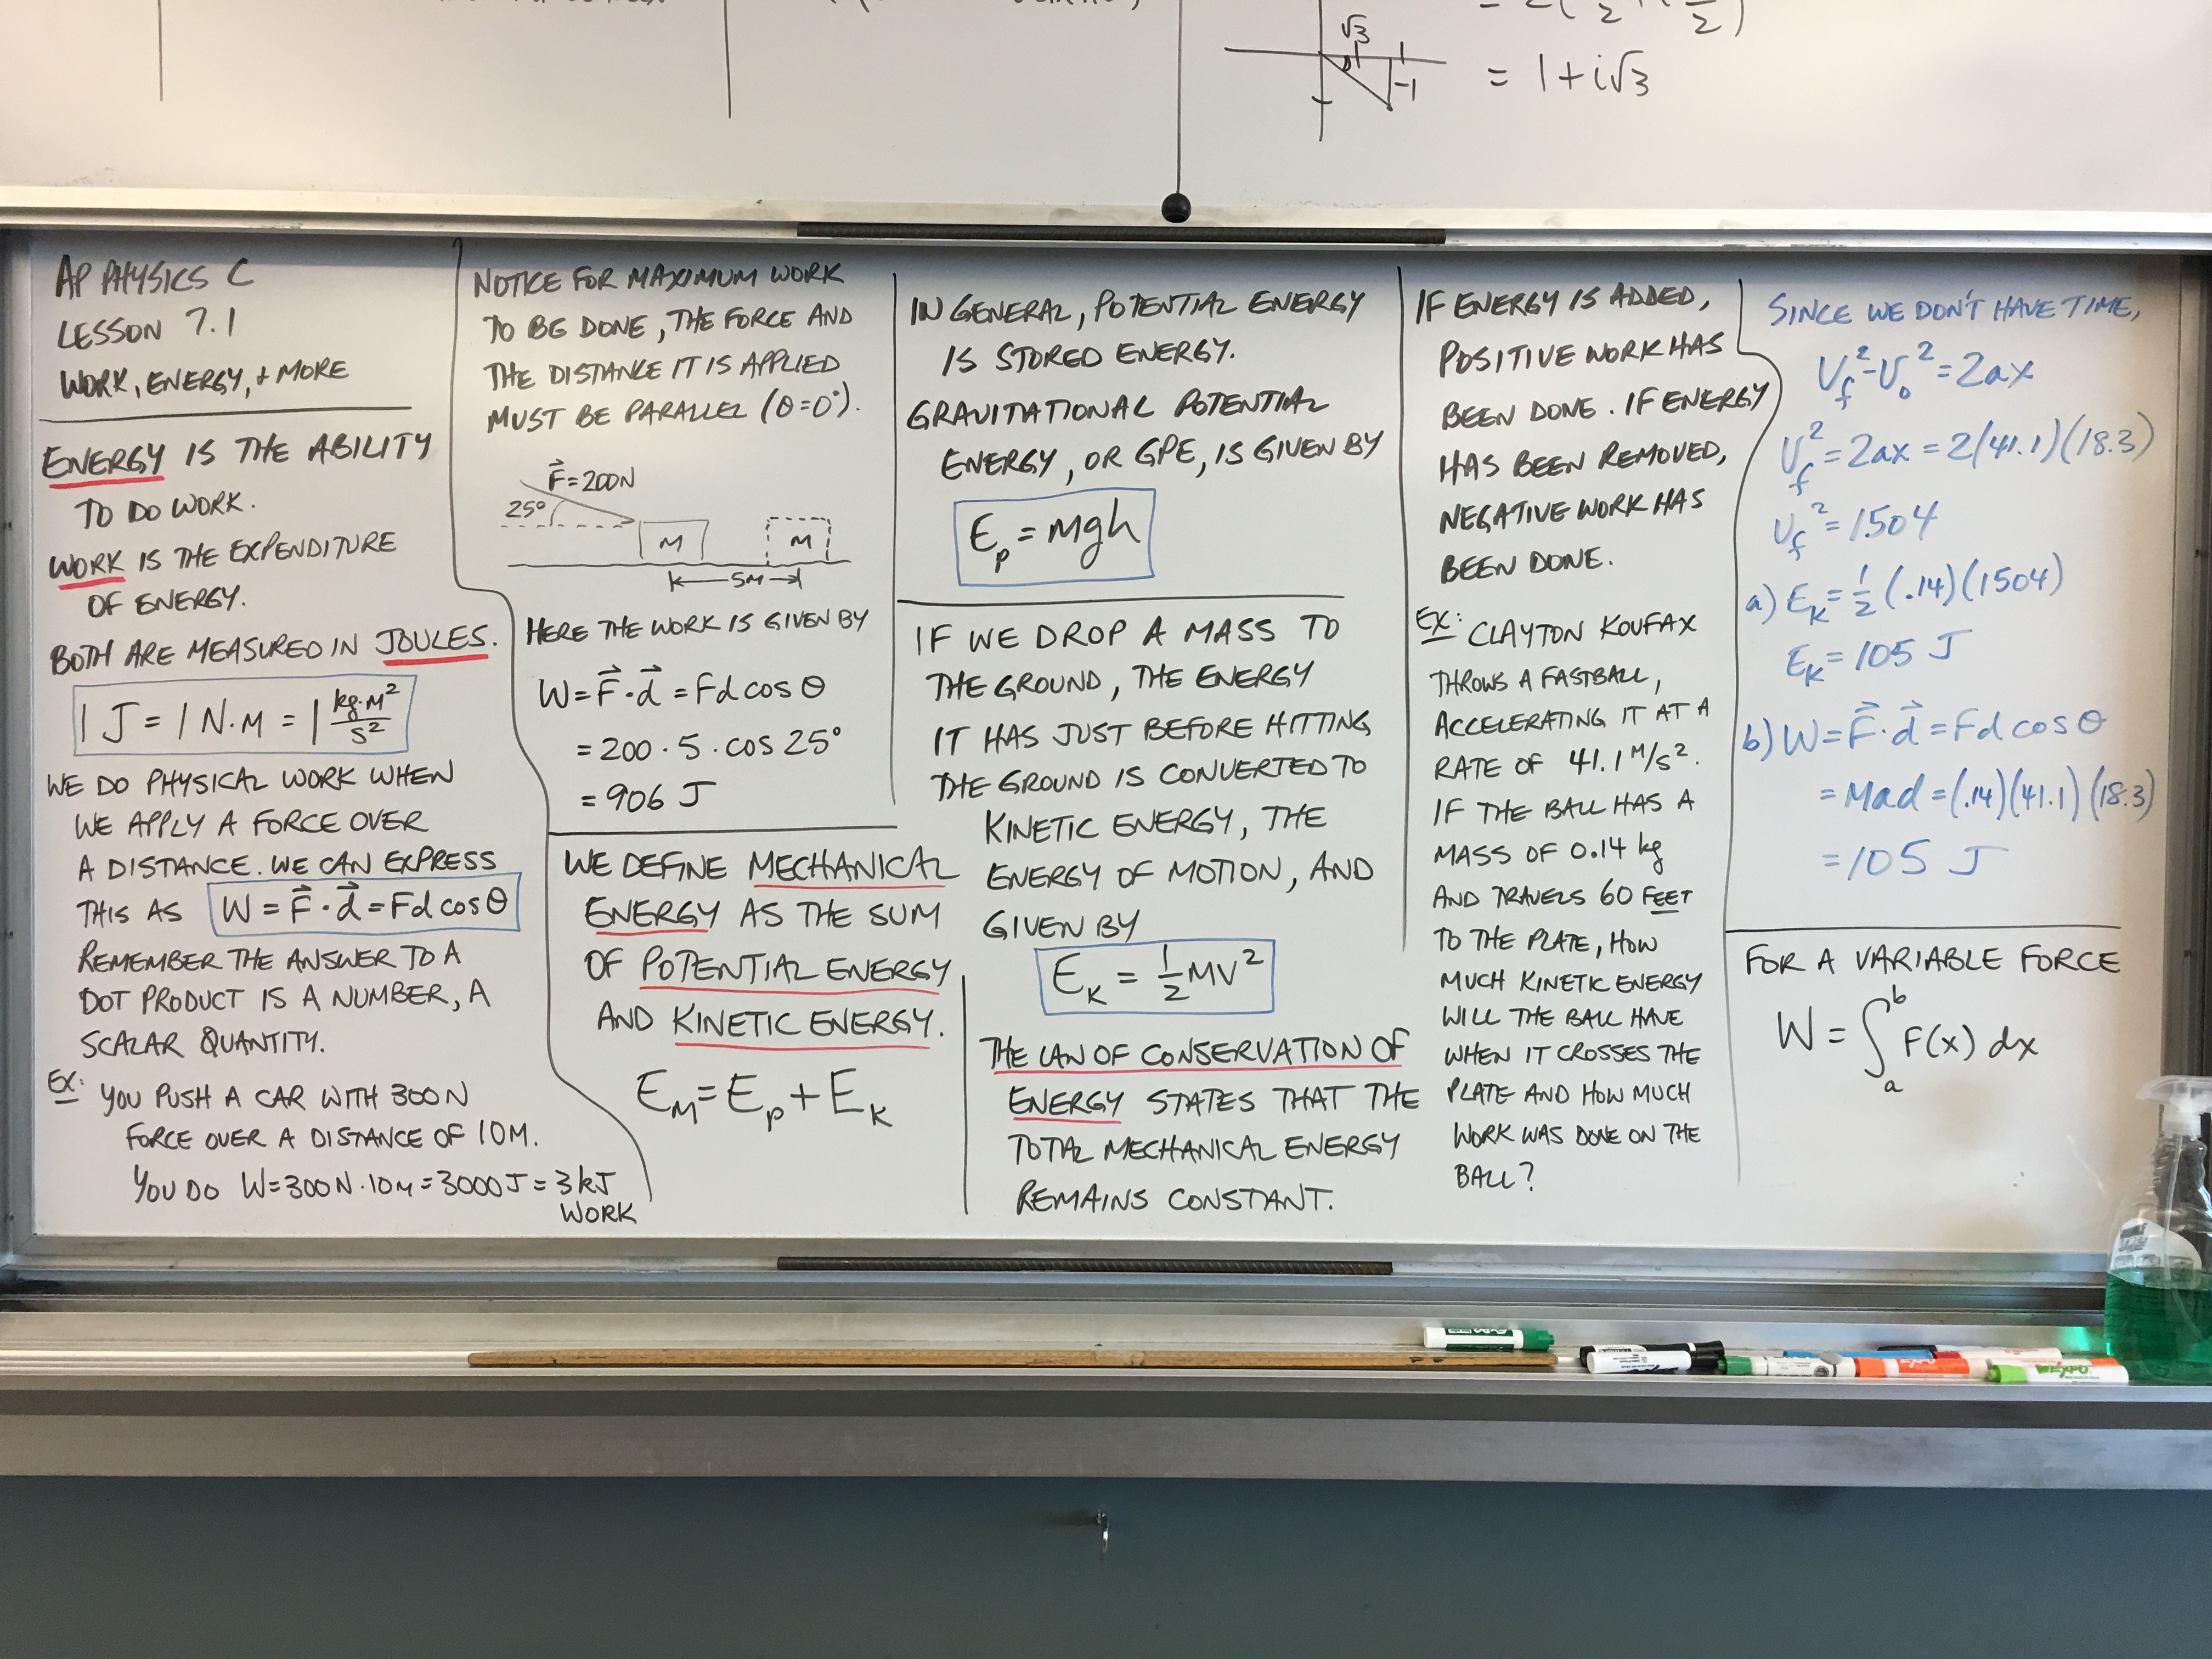 √3
-1
= 1 + i√3
AP PHYSICS C
LESSON 7.1
WORK, ENERGY, + MORE
ENERGY IS THE ABILITY
TO DO WORK.
WORK IS THE EXPENDITURE
OF ENERGY.
BOTH ARE MEASURED IN JOULES.
1 J = 1 N·M = 1 kg·M²/S²
WE DO PHYSICAL WORK WHEN
WE APPLY A FORCE OVER
A DISTANCE. WE CAN EXPRESS
THIS AS W = F⃗ · d⃗ = Fd cos θ
REMEMBER THE ANSWER TO A
DOT PRODUCT IS A NUMBER, A
SCALAR QUANTITY.
EX: YOU PUSH A CAR WITH 300N
FORCE OVER A DISTANCE OF 10M.
YOU DO W=300N·10M=3000J=3kJ
WORK
NOTICE FOR MAXIMUM WORK
TO BE DONE, THE FORCE AND
THE DISTANCE IT IS APPLIED
MUST BE PARALLEL (θ=0°).
F⃗=200N
25°
M
M
5M
HERE THE WORK IS GIVEN BY
W = F⃗ · d⃗ = Fd cos θ
= 200 · 5 · cos 25°
= 906 J
WE DEFINE MECHANICAL
ENERGY AS THE SUM
OF POTENTIAL ENERGY
AND KINETIC ENERGY.
E_M = E_p + E_K
IN GENERAL, POTENTIAL ENERGY
IS STORED ENERGY.
GRAVITATIONAL POTENTIAL
ENERGY, OR GPE, IS GIVEN BY
E_p = mgh
IF WE DROP A MASS TO
THE GROUND, THE ENERGY
IT HAS JUST BEFORE HITTING
THE GROUND IS CONVERTED TO
KINETIC ENERGY, THE
ENERGY OF MOTION, AND
GIVEN BY
E_K = ½MV²
THE LAW OF CONSERVATION OF
ENERGY STATES THAT THE
TOTAL MECHANICAL ENERGY
REMAINS CONSTANT.
IF ENERGY IS ADDED,
POSITIVE WORK HAS
BEEN DONE. IF ENERGY
HAS BEEN REMOVED,
NEGATIVE WORK HAS
BEEN DONE.
EX: CLAYTON KOUFAX
THROWS A FASTBALL,
ACCELERATING IT AT A
RATE OF 41.1 M/S².
IF THE BALL HAS A
MASS OF 0.14 kg
AND TRAVELS 60 FEET
TO THE PLATE, HOW
MUCH KINETIC ENERGY
WILL THE BALL HAVE
WHEN IT CROSSES THE
PLATE AND HOW MUCH
WORK WAS DONE ON THE
BALL?
SINCE WE DON'T HAVE TIME,
V_f² - V_0² = 2ax
V_f² = 2ax = 2(41.1)(18.3)
V_f² = 1504
a) E_K = ½(.14)(1504)
E_K = 105 J
b) W = F⃗ · d⃗ = Fd cos θ
= Mad = (.14)(41.1)(18.3)
= 105 J
FOR A VARIABLE FORCE
W = ∫_a^b F(x) dx
EXPO